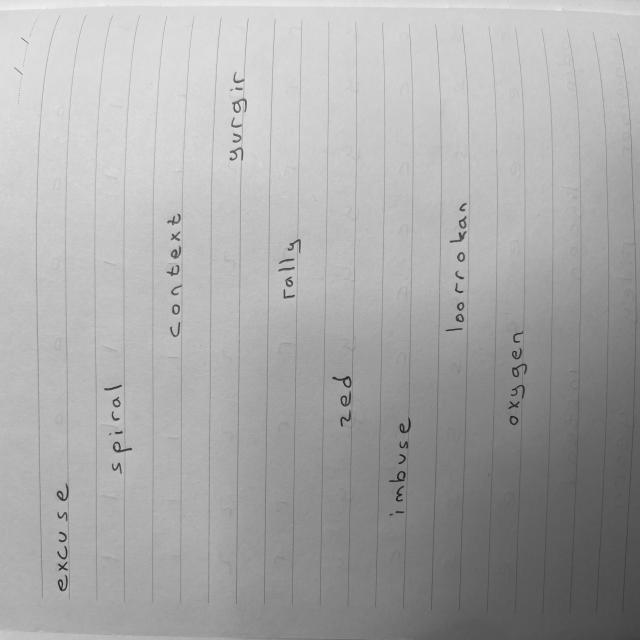 excuse
spiral
context
yurgir
rally
zed
imbuse
loorrokan
oxygen